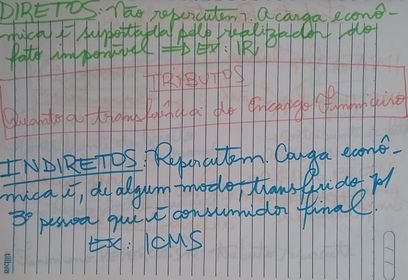 DIRETOS: Não repercutem. A carga econô-
mica é suportada pelo realizador do
fato imponível => EX: IR
TRIBUTOS
Quanto a transferência do Encargo Financeiro
INDIRETOS: Repercutem. Carga econô-
mica é, de algum modo, transferido p/
3º pessoa que é consumidor final.
EX: ICMS
tilibra